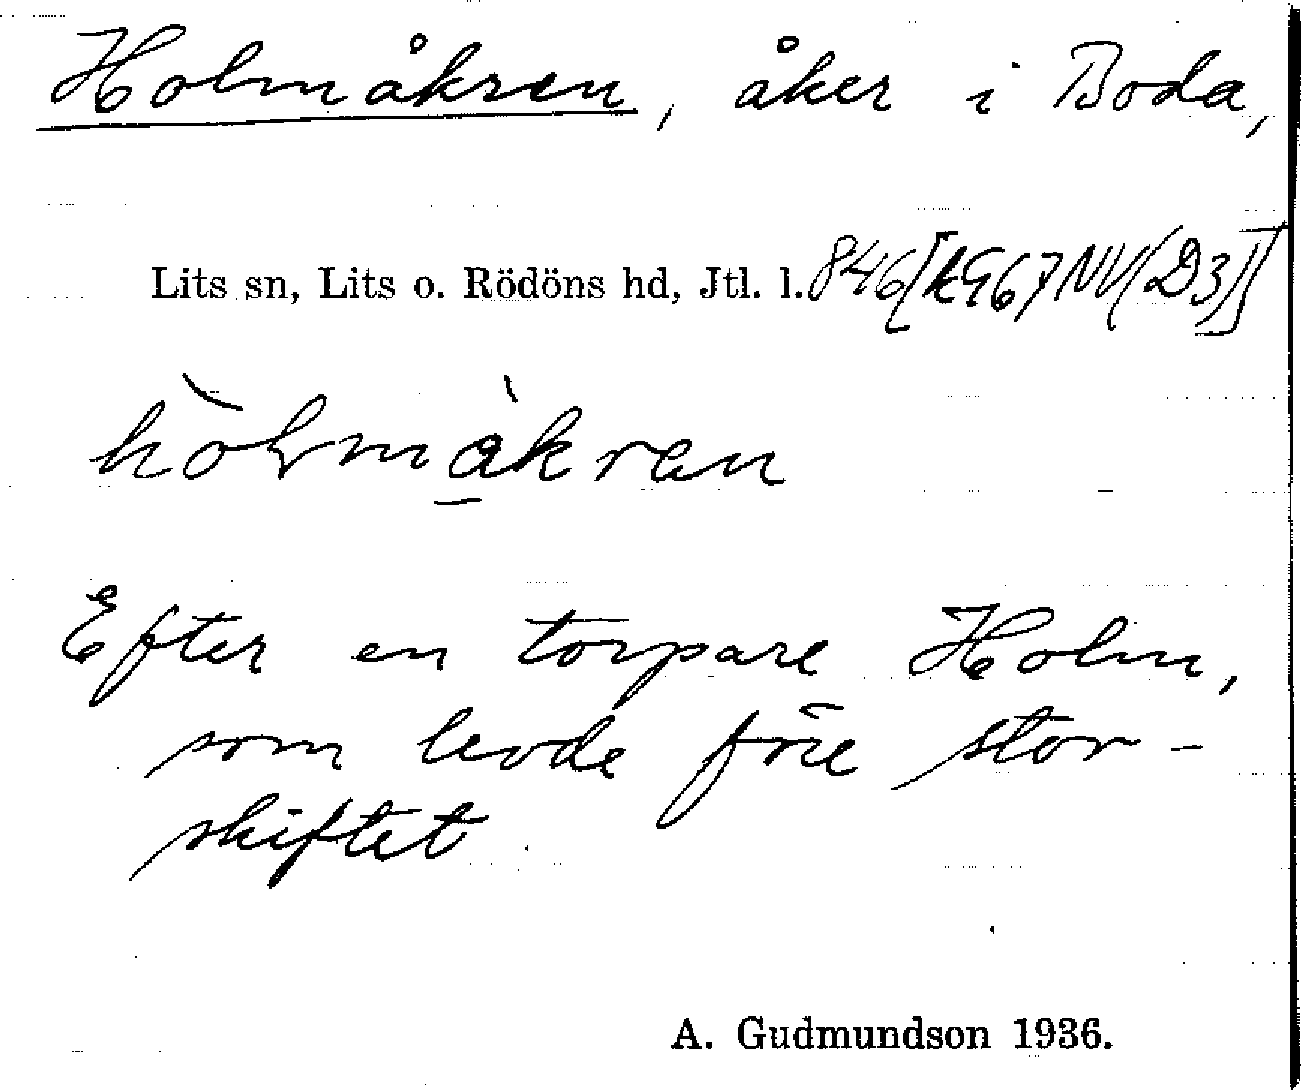 Holmåkren, åker i Boda,
Lits sn, Lits o. Rödöns hd, Jtl. l. 846[K967NV(D3)]
hòlmàkren
Efter en torpare Holm,
som levde före stor-
skiftet.
A. Gudmundson 1936.